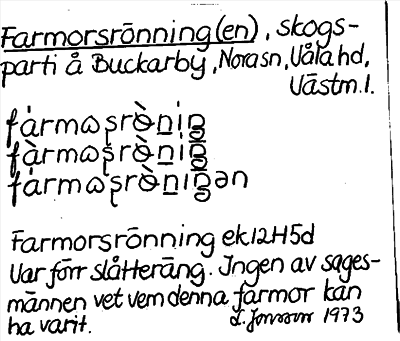 Farmorsrönning(en), skogs-
parti å Buckarby, Nora sn, Våla hd,
Västm.l.
Farmorsrönning ek.12H5d
Var förr slåtteräng. Ingen av sages-
männen vet vem denna farmor kan
ha varit. L. Jonsson 1973